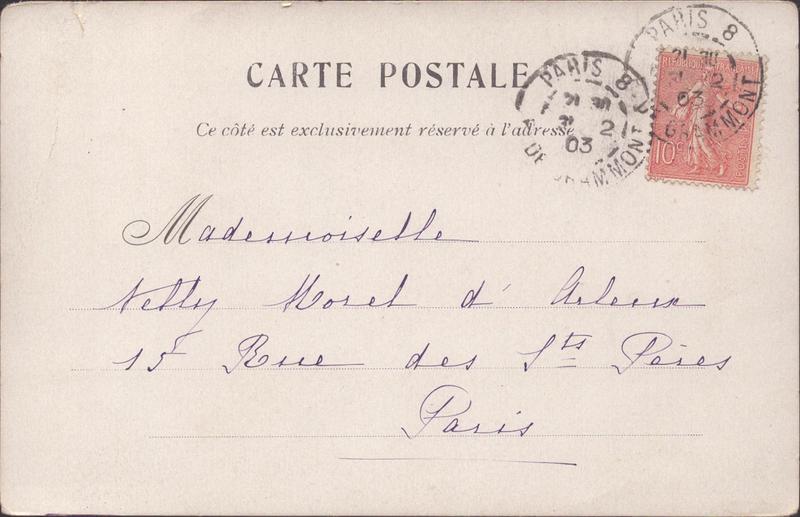 CARTE POSTALE
Ce côté est exclusivement réservé à l'adresse
PARIS 8
2
03
DE GRAMMONT
PARIS 8
2
03
GRAMMONT
RÉPUBLIQUE FRANÇAISE
10c
POSTES
Mademoiselle
Nelly Morel d' Arleux
15 Rue des Sts Pères
Paris